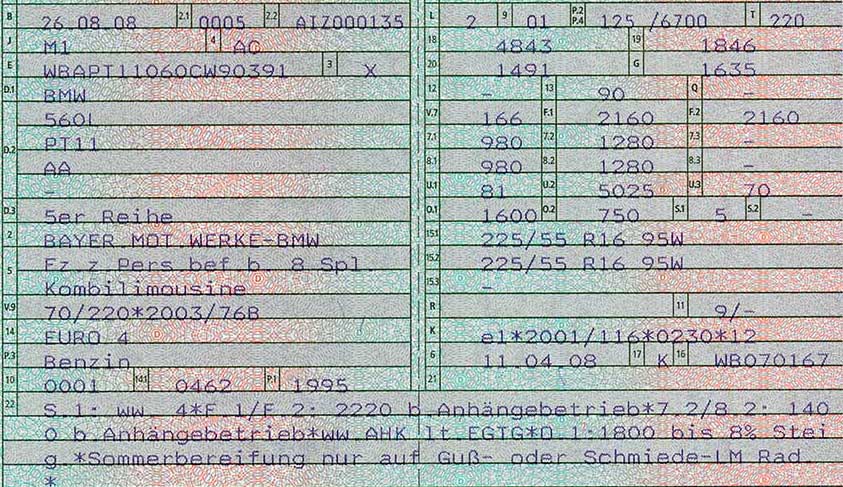 B 26.08.08 2.1 0005 2.2 AIZ000135
J M1 4 AC
E WBAPT11060CW90391 3 X
D.1 BMW
560L
D.2 PT11
AA
-
D.3 5er Reihe
2 BAYER.MOT.WERKE-BMW
5 Fz.z.Pers.bef.b. 8 Spl.
Kombilimousine
V.9 70/220*2003/76B
14 EURO 4
P.3 Benzin
10 0001 14.1 0462 P.1 1995
L 2 9 01 P.2 P.4 125 /6700 T 220
18 4843 19 1846
20 1491 G 1635
12 - 13 90 Q -
V.7 166 F.1 2160 F.2 2160
7.1 980 7.2 1280 7.3 -
8.1 980 8.2 1280 8.3 -
U.1 81 U.2 5025 U.3 70
O.1 1600 O.2 750 S.1 5 S.2 -
15.1 225/55 R16 95W
15.2 225/55 R16 95W
15.3 -
R 11 9/-
K e1*2001/116*0230*12
6 11.04.08 17 K 16 WB070167
21
22 S.1: ww. 4*F.1/F.2: 2220 b.Anhängebetrieb*7.2/8.2: 140
0 b.Anhängebetrieb*ww.AHK lt.EGTG*O.1:1800 bis 8% Stei
g.*Sommerbereifung nur auf Guß- oder Schmiede-LM Rad
*